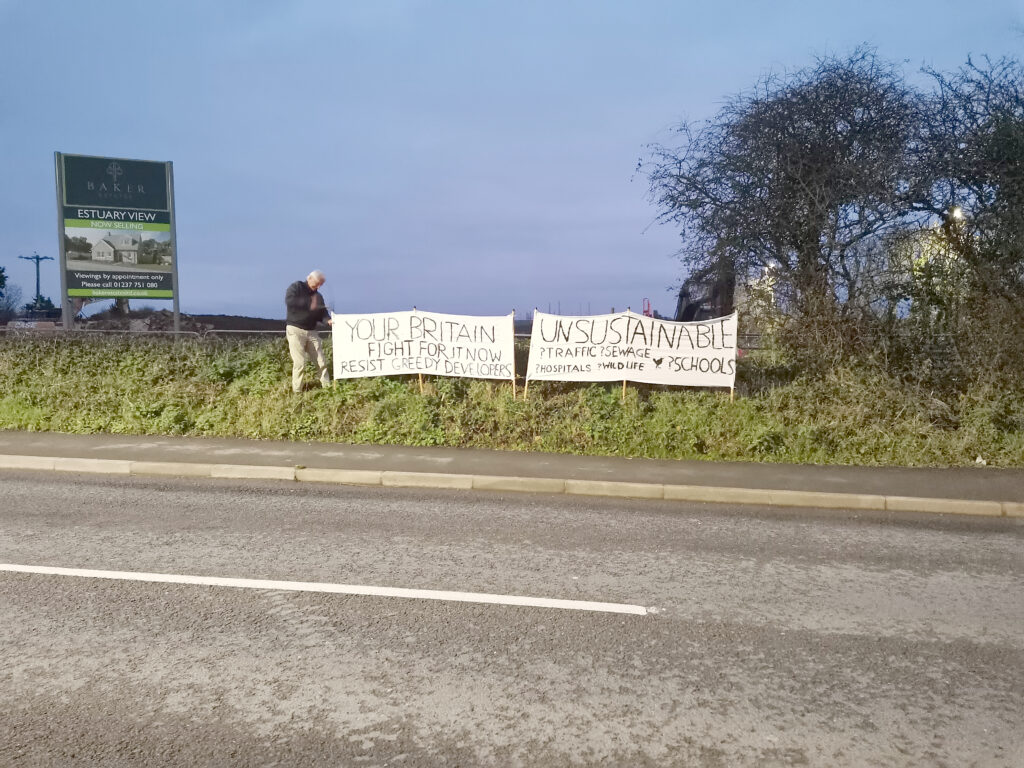 BAKER
ESTATES
ESTUARY VIEW
NOW SELLING
Viewings by appointment only
Please call 01237 751 080
YOUR BRITAIN
FIGHT FOR IT NOW
RESIST GREEDY DEVELOPERS
UNSUSTAINABLE
?TRAFFIC ?SEWAGE
?HOSPITALS ?WILDLIFE ?SCHOOLS